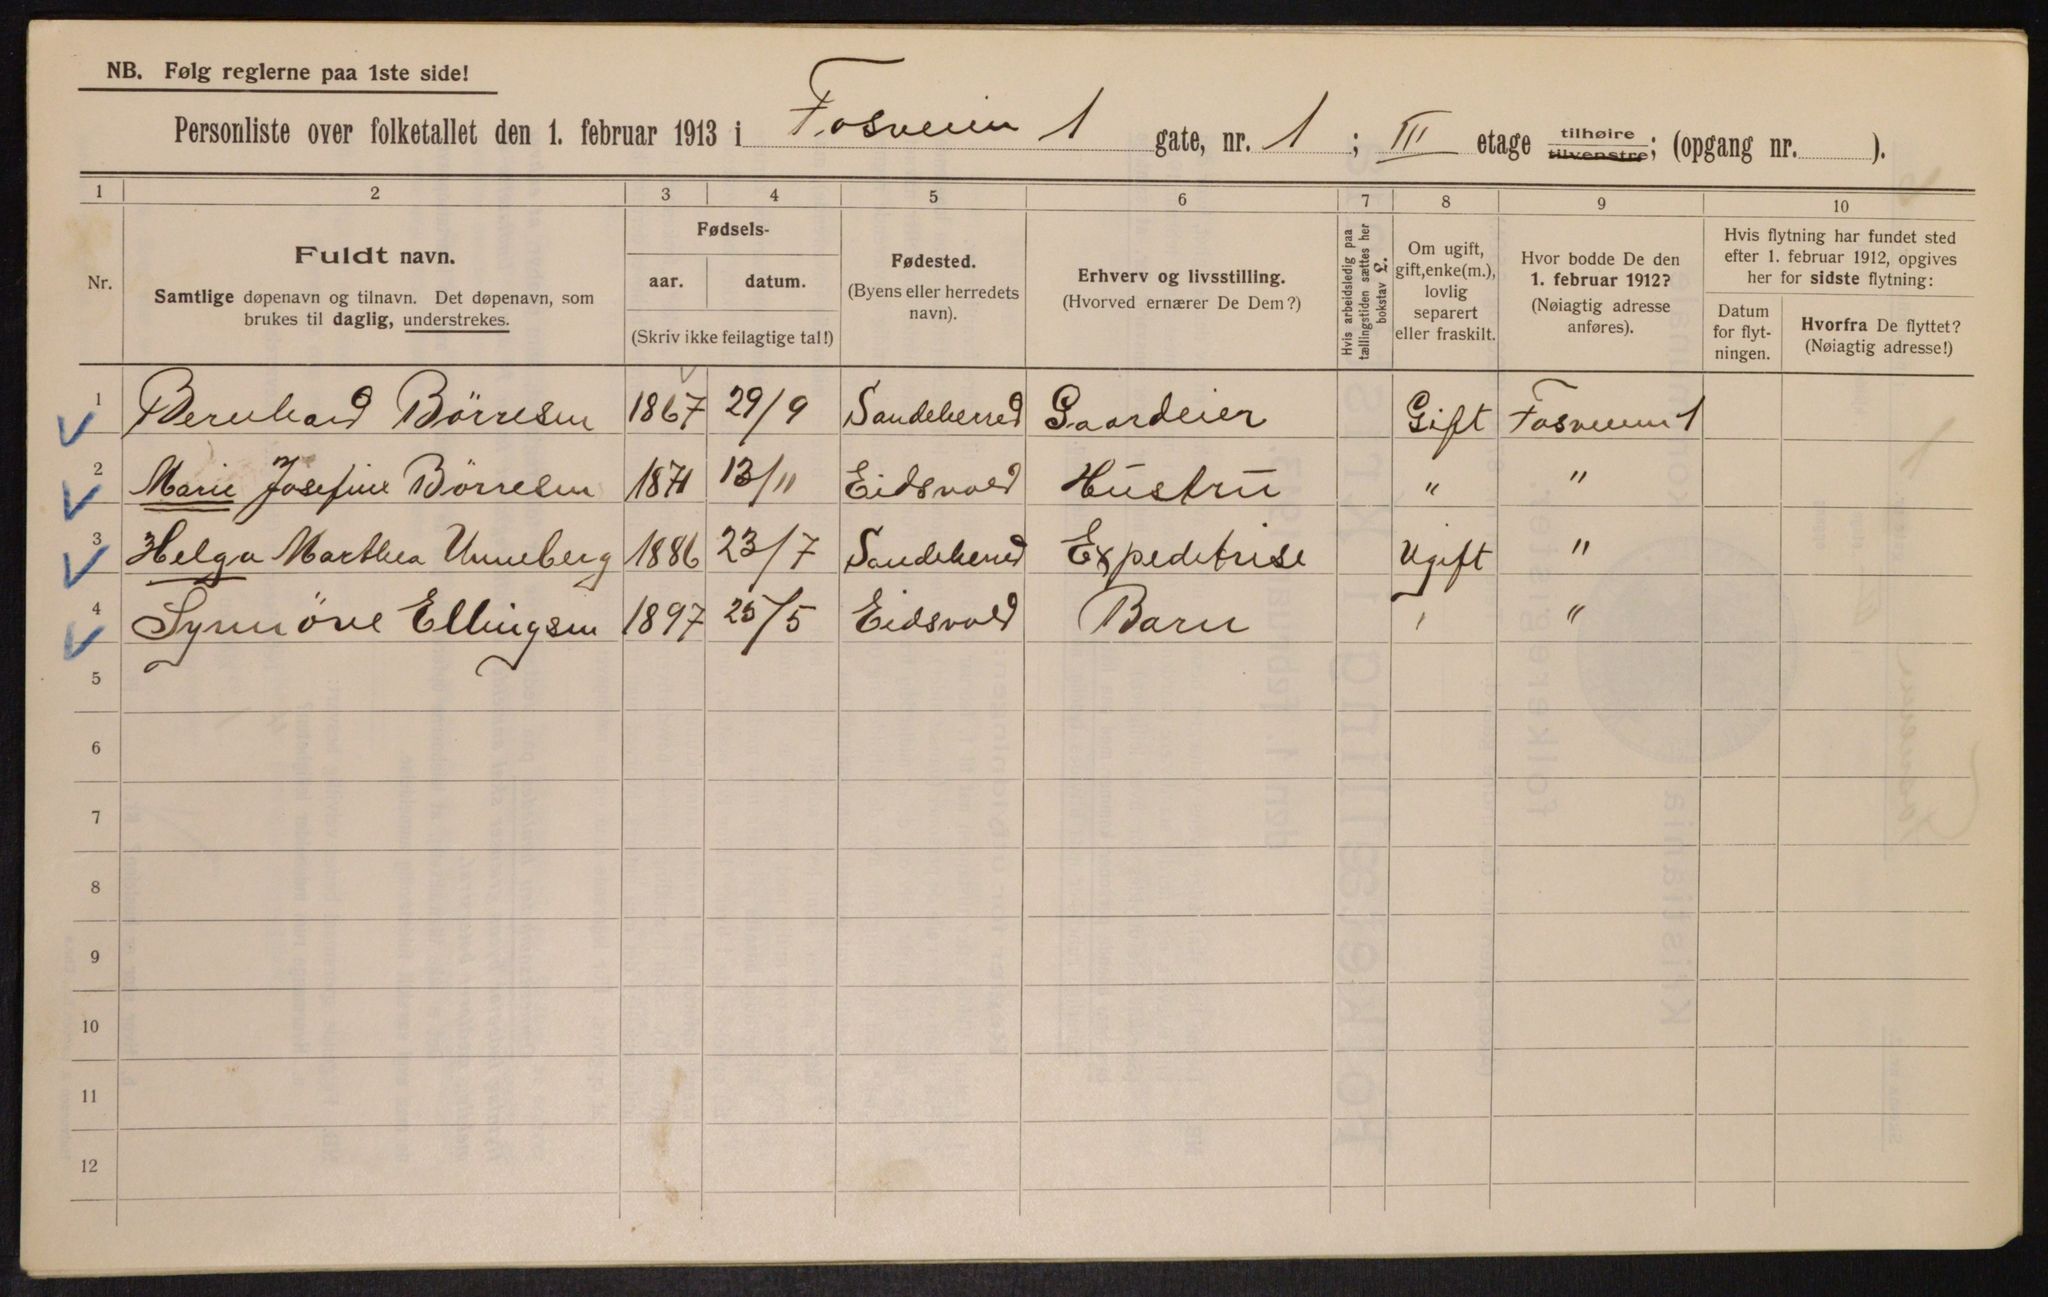 NB. Følg reglerne paa 1ste side!
Personliste over folketallet den 1. februar 1913 i Fosveien 1 gate, nr. 1; III etage tilhøire tilvenstre; (opgang nr. ).
1 2 3 4 5 6 7 8 9 10
Nr.
Fuldt navn.
Samtlige døpenavn og tilnavn. Det døpenavn, som
brukes til daglig, understrekes.
Fødsels-
aar. datum.
(Skriv ikke feilagtige tal!)
Fødested.
(Byens eller herredets
navn).
Erhverv og livsstilling.
(Hvorved ernærer De Dem?)
Hvis arbeidsledig paa
tællingstiden sættes her
bokstav L.
Om ugift,
gift, enke(m.),
lovlig
separert
eller fraskilt.
Hvor bodde De den
1. februar 1912?
(Nøiagtig adresse
anføres).
Hvis flytning har fundet sted
efter 1. februar 1912, opgives
her for sidste flytning:
Datum
for flyt-
ningen.
Hvorfra De flyttet?
(Nøiagtig adresse!)
1 Bernhard Börresen 1867 29/9 Sandeherred Gaardeier Gift Fosveien 1
2 Marie Josefine Börresen 1871 13/11 Eidsvold Hustru " "
3 Helga Marthea Unneberg 1886 23/7 Sandeherred Expeditrise Ugift "
4 Synnöve Ellingsen 1897 25/5 Eidsvold Barn " "
5
6
7
8
9
10
11
12